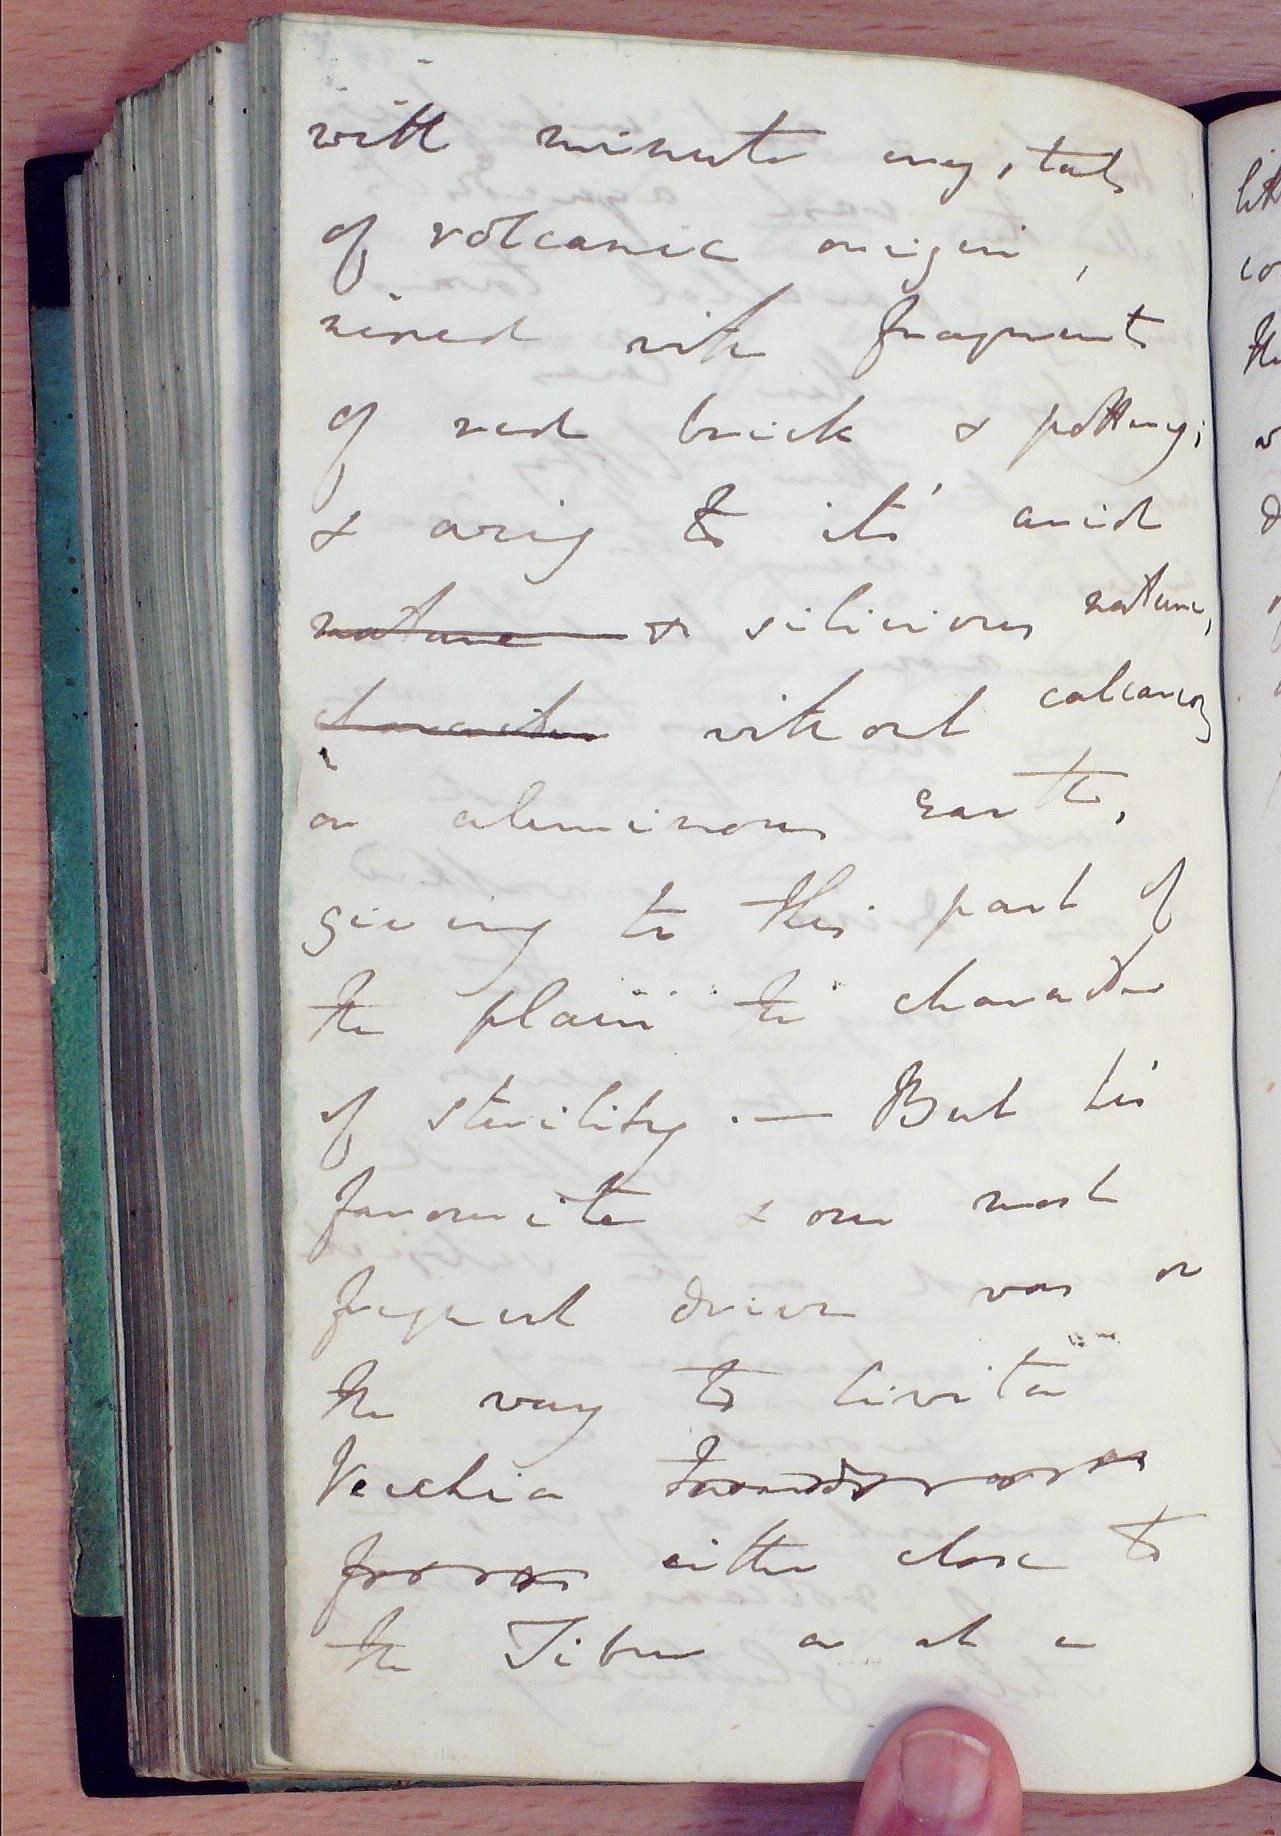 with minute crystals
of volcanic origin,
mixed with fragments
of red brick & pottery;
& owing to its' acid
nature & silicious nature,
character without calcareous
or aluminous earth,
giving to this part of
the plain the character
of sterility. — But his
favourite & our most
frequent drive was on
the way to Civita
Vecchia towards
from either close to
the Tiber or at a
lit
co